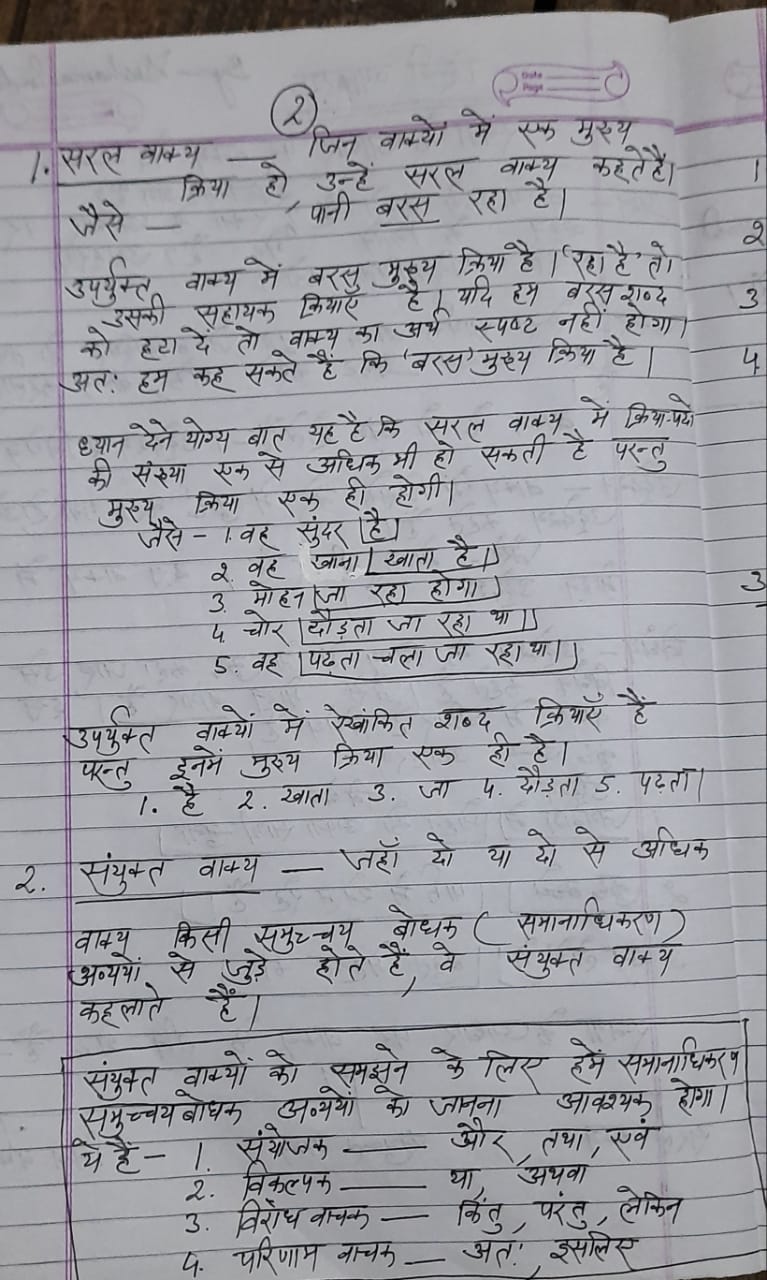 Date
Page
2
1. सरल वाक्य — जिन वाक्यों में एक मुख्य
क्रिया हो, उन्हें सरल वाक्य कहते हैं।
जैसे — पानी बरस रहा है।
उपर्युक्त वाक्य में बरस मुख्य क्रिया है। 'रहा है' तो
उसकी सहायक क्रियाएँ हैं। यदि हम बरस शब्द
को हटा दें तो वाक्य का अर्थ स्पष्ट नहीं होगा।
अतः हम कह सकते हैं कि 'बरस' मुख्य क्रिया है।
ध्यान देने योग्य बात यह है कि सरल वाक्य में क्रिया-पदों
की संख्या एक से अधिक भी हो सकती है परन्तु
मुख्य क्रिया एक ही होगी।
जैसे - 1. वह सुंदर है।
2. वह खाना खाता है।
3. मोहन जा रहा होगा।
4 चोर दौड़ता जा रहा था।
5. वह पढ़ता चला जा रहा था।
उपर्युक्त वाक्यों में रेखांकित शब्द क्रियाएँ हैं
परन्तु इनमें मुख्य क्रिया एक ही है।
1. है 2. खाता 3. जा 4. दौड़ता 5. पढ़ता।
2. संयुक्त वाक्य — जहाँ दो या दो से अधिक
वाक्य किसी समुच्चय बोधक (समानाधिकरण)
अव्ययों से जुड़े होते हैं, वे संयुक्त वाक्य
कहलाते हैं।
संयुक्त वाक्यों को समझने के लिए हमें समानाधिकरण
समुच्चयबोधक अव्ययों को जानना आवश्यक होगा।
ये हैं - 1. संयोजक — और, तथा, एवं
2. विकल्पक — या, अथवा
3. विरोध वाचक — किंतु, परंतु, लेकिन
4. परिणाम वाचक — अतः, इसलिए
1
2
3
4
3